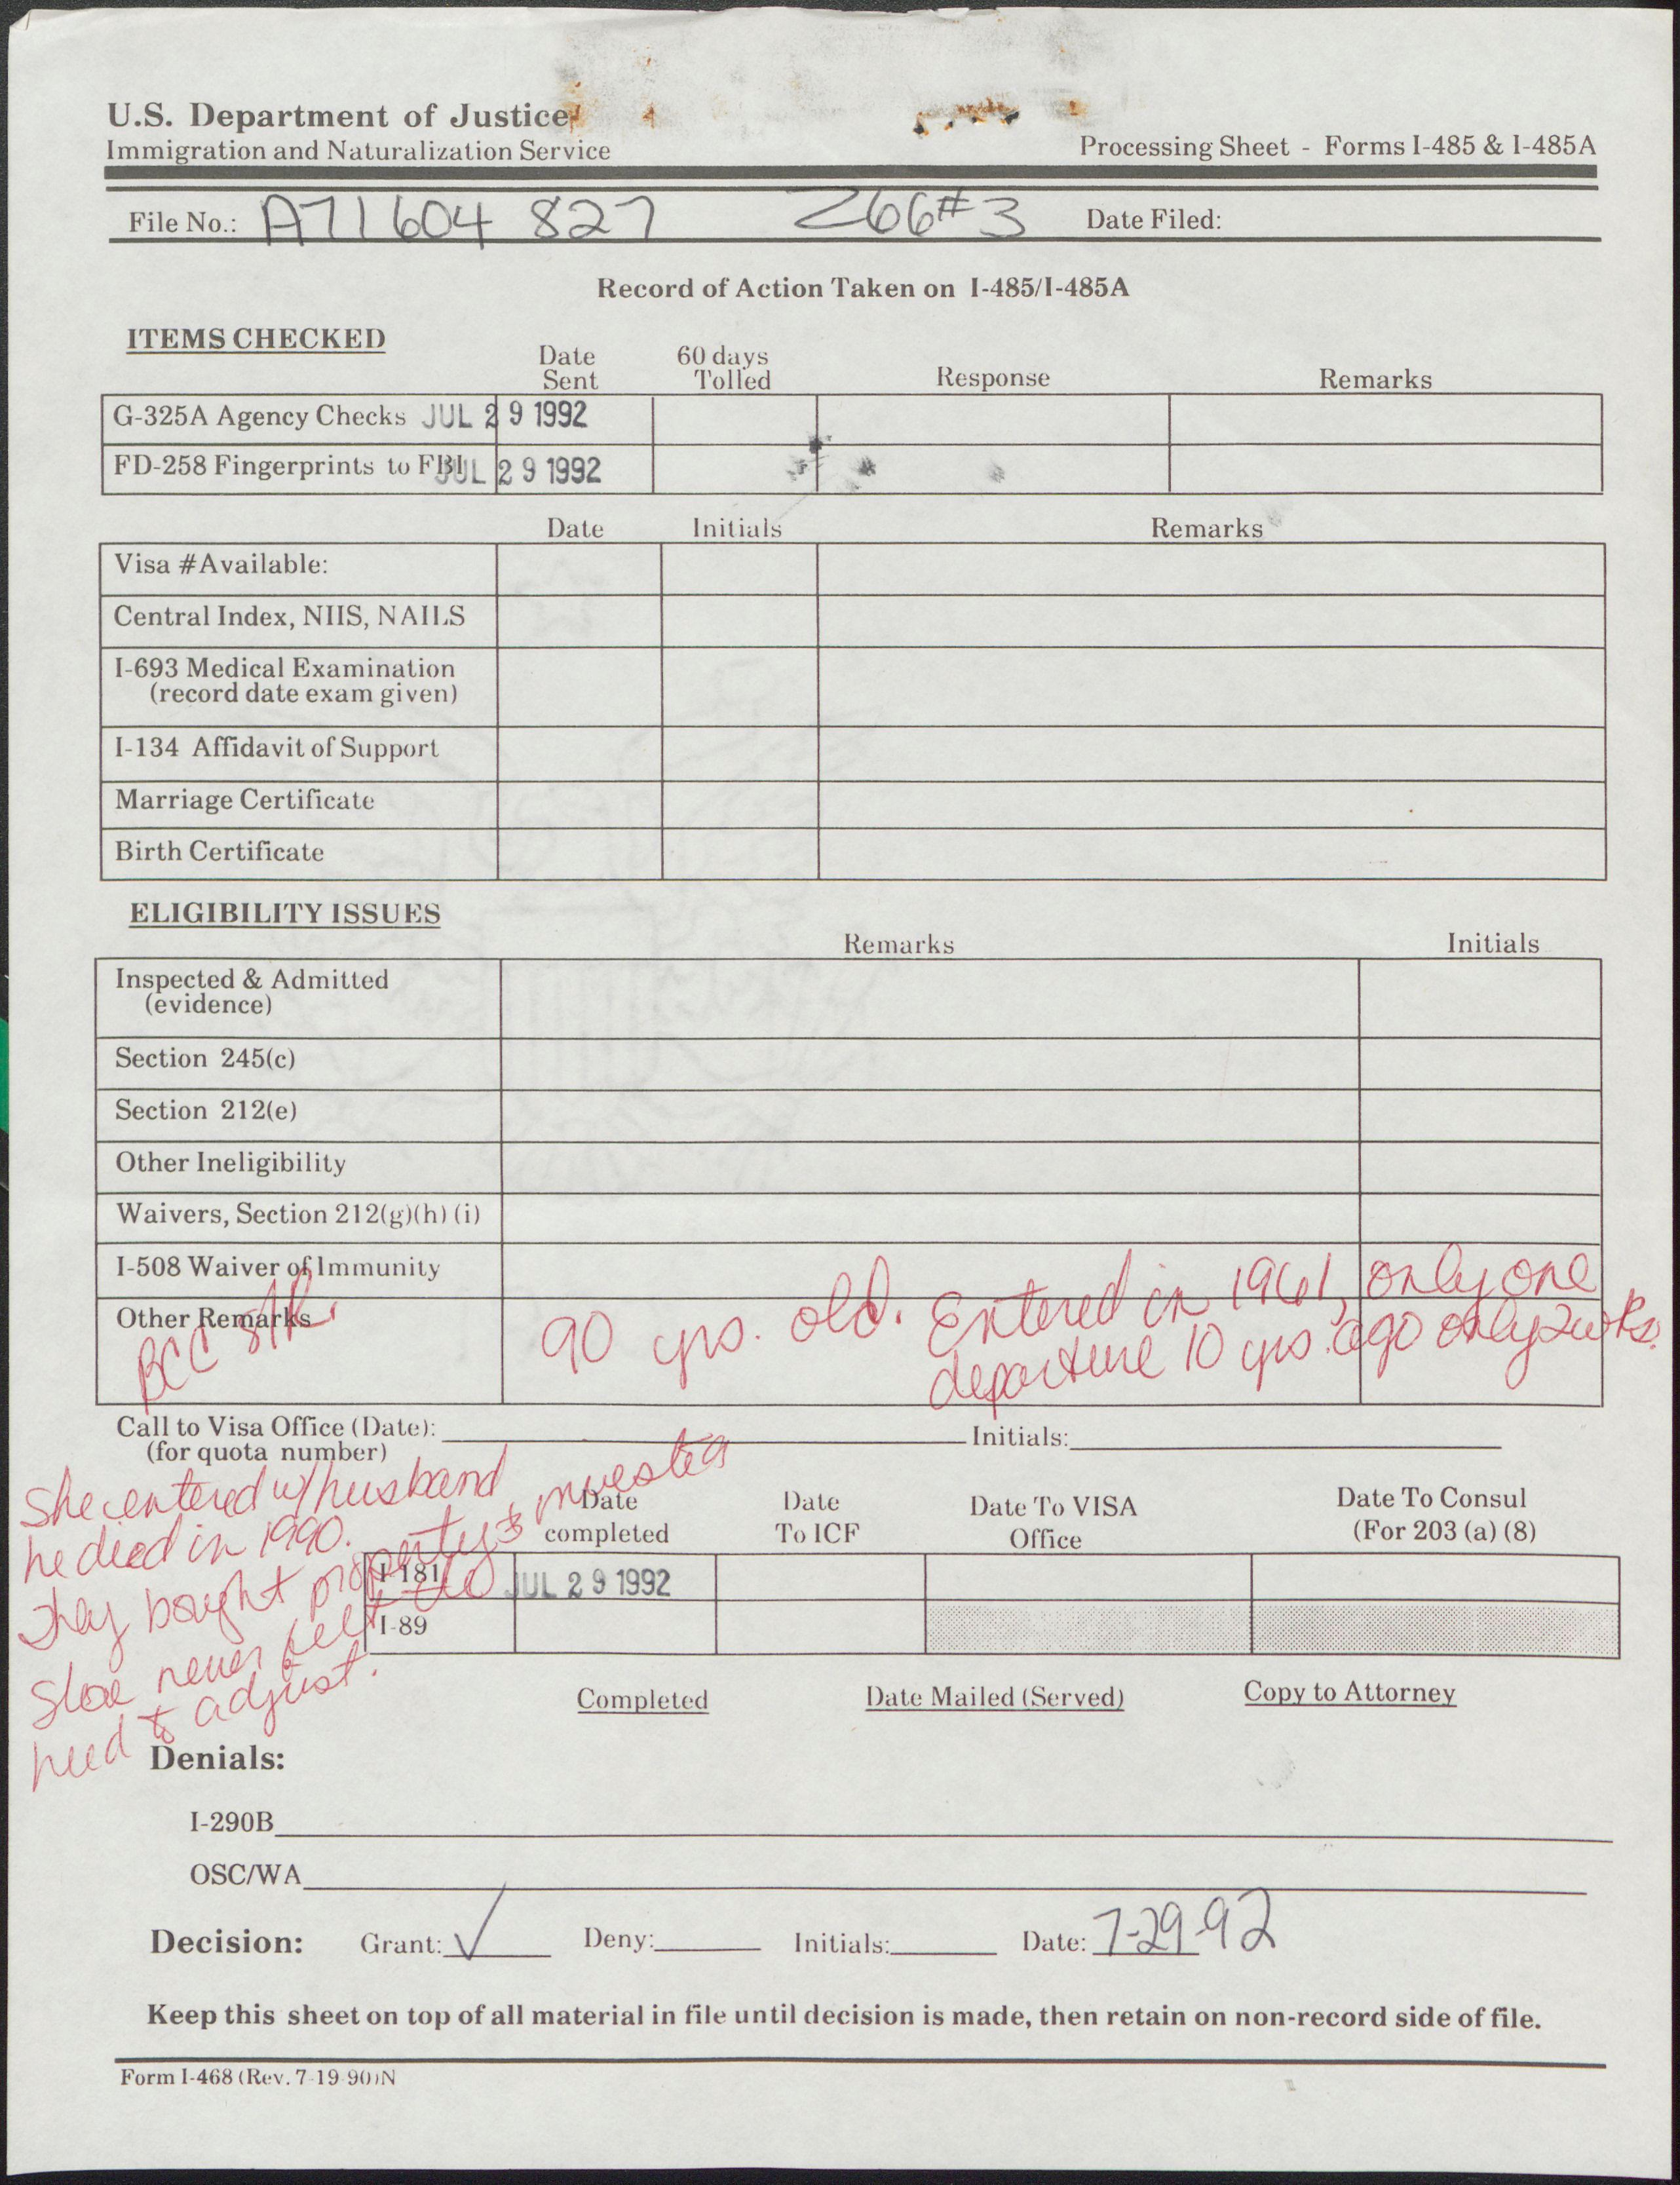 U.S. Department of Justice
Immigration and Naturalization Service
Processing Sheet - Forms I-485 & I-485A
File No.: A71 604 827 Z66#3 Date Filed:
Record of Action Taken on I-485/I-485A
ITEMS CHECKED
Date Sent 60 days Tolled Response Remarks
G-325A Agency Checks JUL 29 1992
FD-258 Fingerprints to FBI JUL 29 1992
Date Initials Remarks
Visa #Available:
Central Index, NIIS, NAILS
I-693 Medical Examination
(record date exam given)
I-134 Affidavit of Support
Marriage Certificate
Birth Certificate
ELIGIBILITY ISSUES
Remarks Initials
Inspected & Admitted
(evidence)
Section 245(c)
Section 212(e)
Other Ineligibility
Waivers, Section 212(g)(h)(i)
I-508 Waiver of Immunity
Other Remarks
BCC
90 yrs. old. Entered in 1961, only one
departure 10 yrs. ago only 2 wks.
Call to Visa Office (Date): Initials:
(for quota number)
She entered w/husband
he died in 1990.
They bought property & invested
She never felt the
need to adjust.
Date completed Date To ICF Date To VISA Office Date To Consul (For 203 (a) (8)
I-181 JUL 29 1992
I-89
Completed Date Mailed (Served) Copy to Attorney
Denials:
I-290B
OSC/WA
Decision: Grant: ✓ Deny: Initials: Date: 7-29-92
Keep this sheet on top of all material in file until decision is made, then retain on non-record side of file.
Form I-468 (Rev. 7-19-90)N